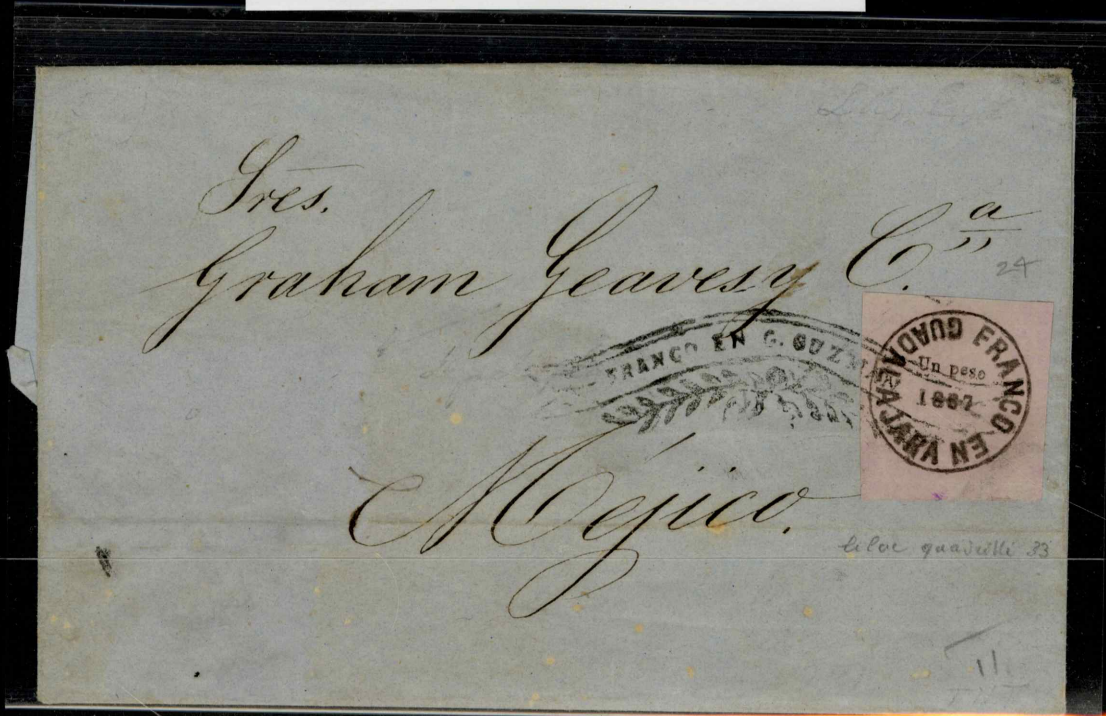 Sres.
Graham Geaves y C.ª
24
FRANCO EN C. GUZMA
FRANCO EN GUADALAJARA
Un peso
1867
Méjico.
lilac quadrillé 33